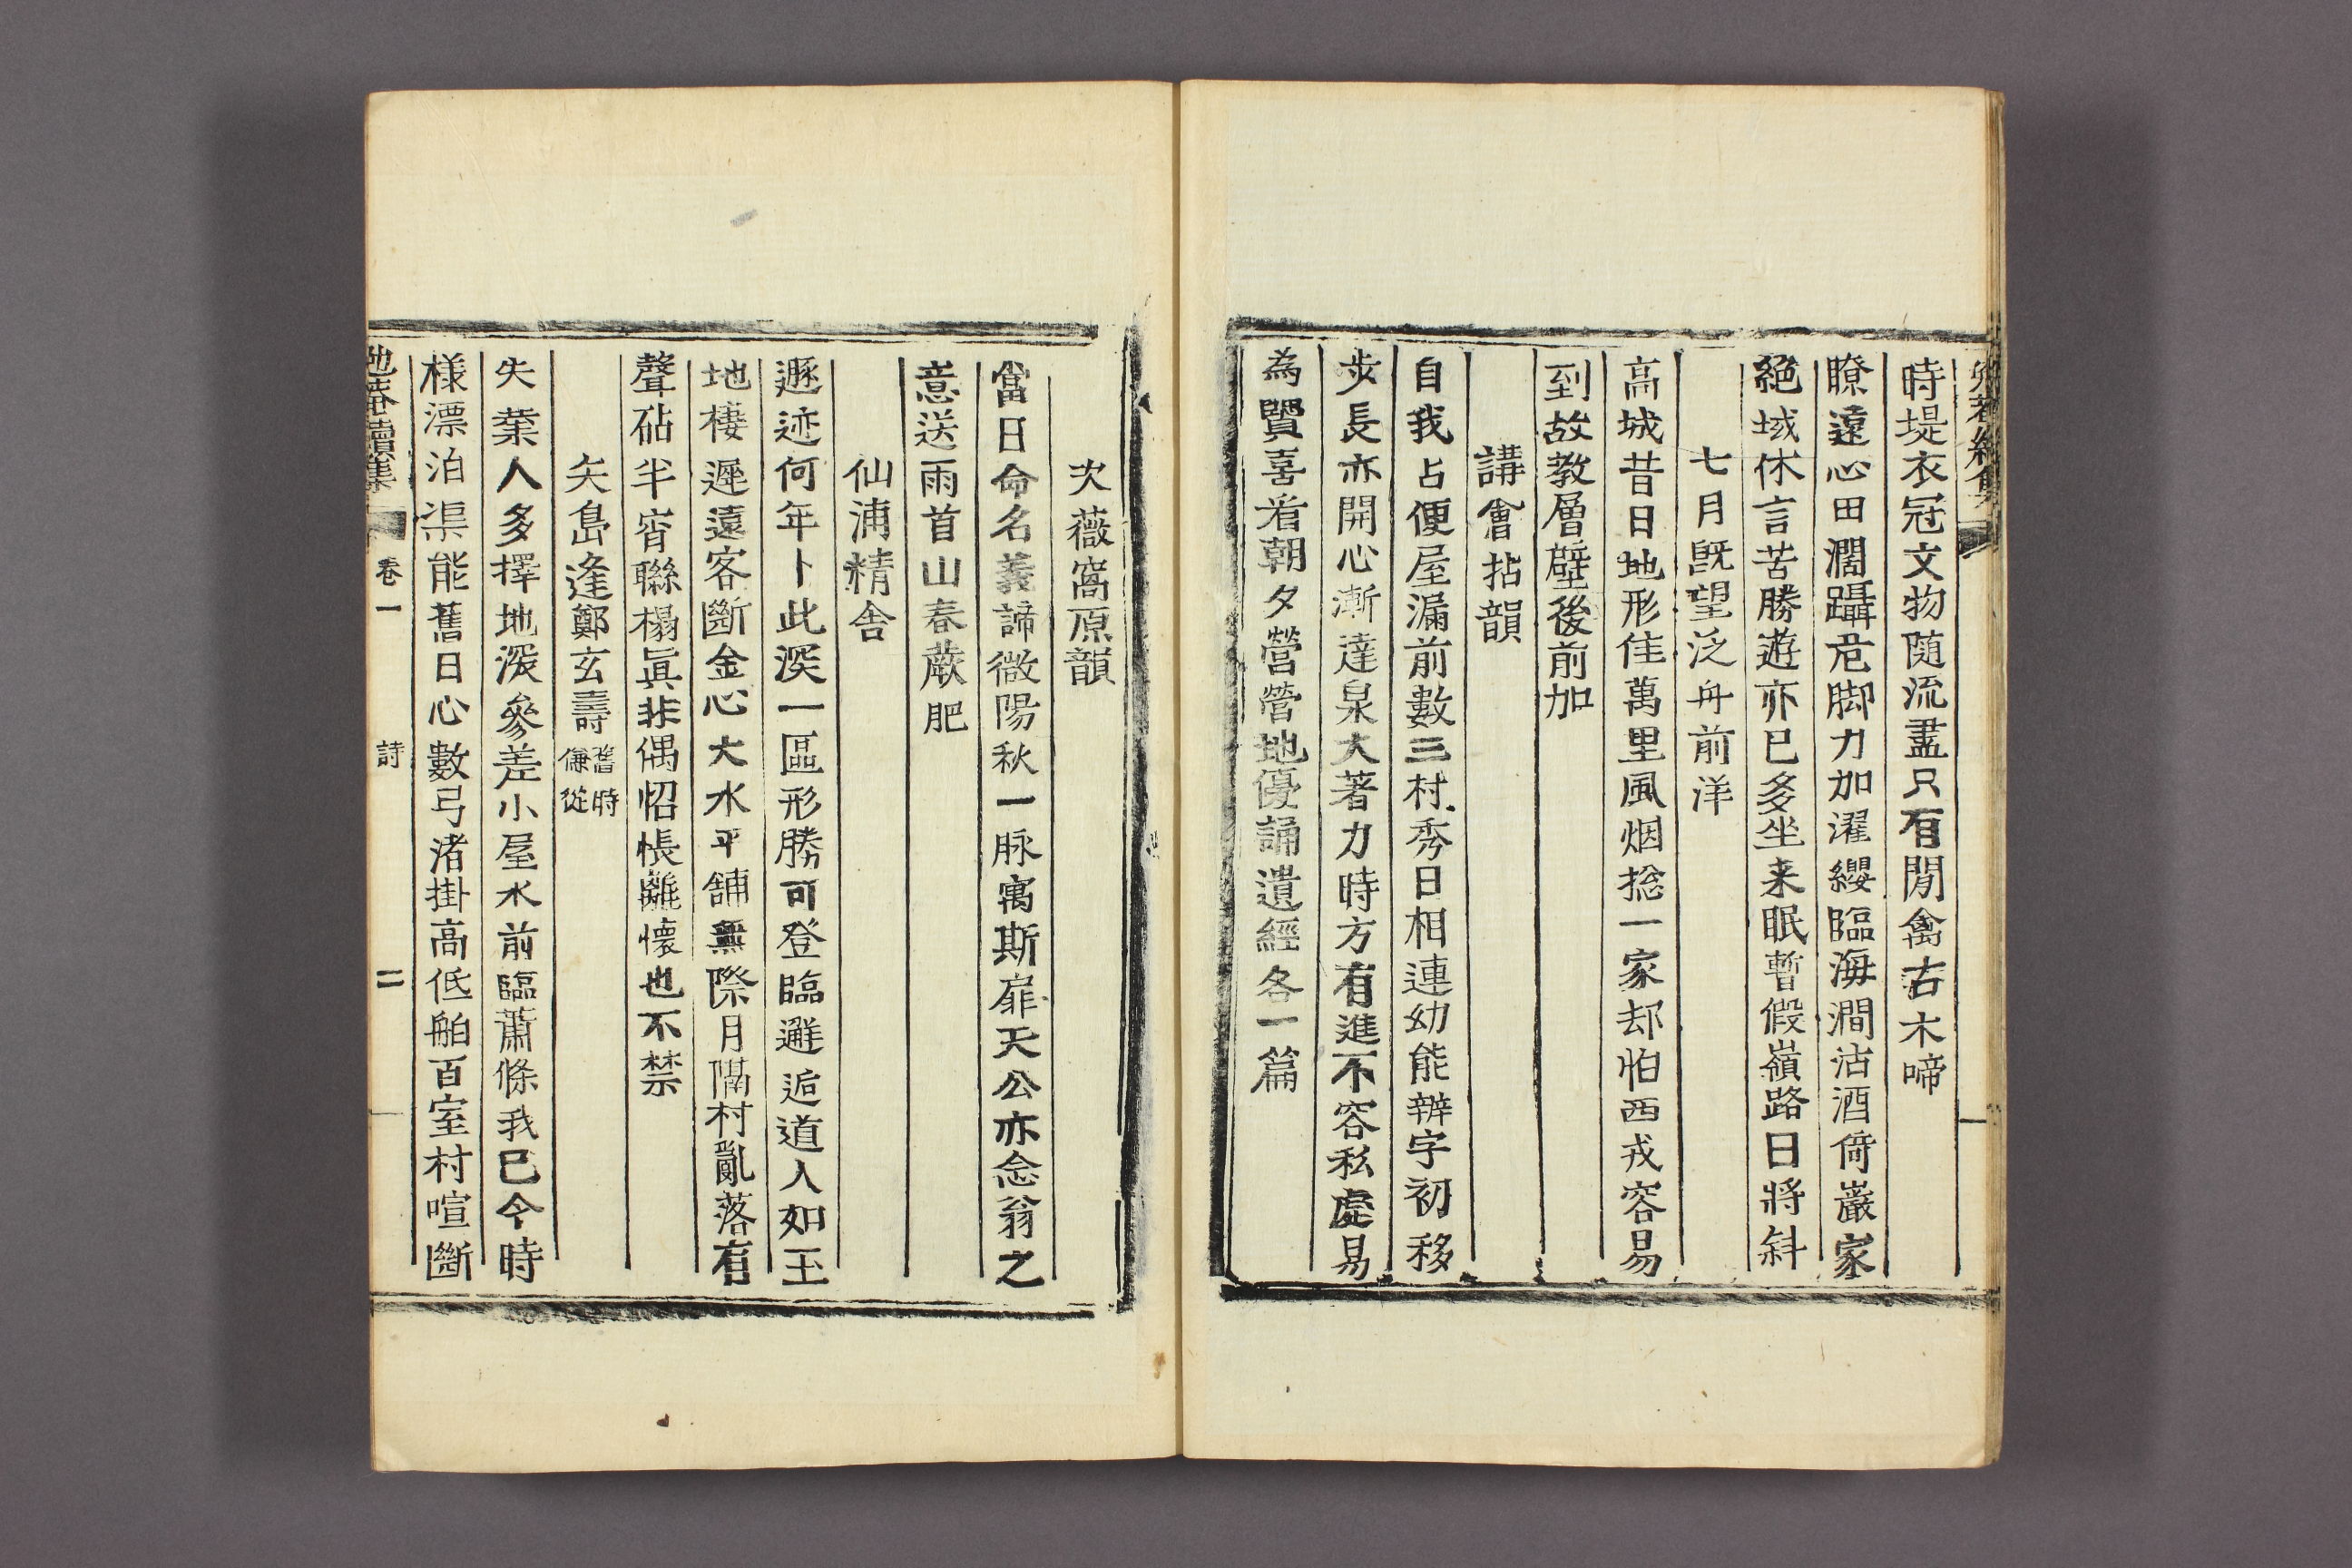 時堤衣冠文物随流盡只有閒禽古木啼
瞭遠心田濶躡危脚力加濯纓臨海澗沽酒倚巖家
絕域休言苦勝遊亦已多坐来眠暫假嶺路日將斜
七月旣望泛舟前洋
高城昔日地形佳萬里風烟捴一家却怕西戎容易
到故教層壁後前加
講會拈韻
自我占便屋漏前數三村秀日相連幼能辨字初移
步長亦開心漸達泉大著力時方有進不容私處易
為賢喜看朝夕營營地優誦遺經各一篇
次薇窩原韻
當日命名義諦微陽秋一脉寓斯扉天公亦念翁之
意送雨首山春蕨肥
仙浦精舍
遯迹何年卜此深一區形勝可登臨邂逅道人如玉
地棲遲遠客斷金心大水平舖無際月隔村亂落有
聲砧半宵聯榻眞非偶怊悵離懷也不禁
矢島逢鄭玄壽
舊時
傔從
失業人多擇地深參差小屋水前臨蕭條我已今時
樣漂泊渠能舊日心數弓渚掛高低舶百室村喧斷
續集
卷一
詩
二